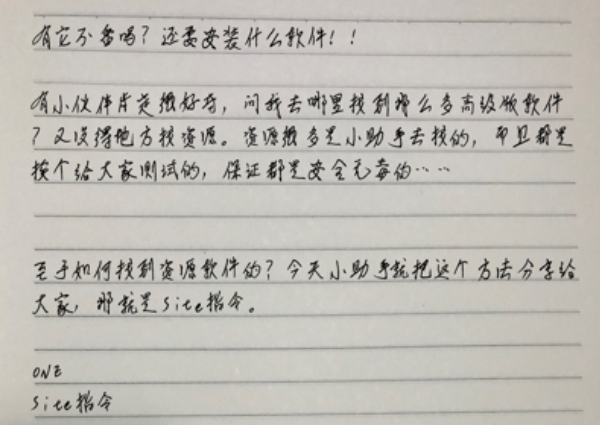 有它不香吗？还要安装什么软件！！
有小伙伴肯定很好奇，问我去哪里找到那么多高级版软件
？又没得地方找资源。资源很多是小助手去找的，而且都是
挨个给大家测试的，保证都是安全无毒的……
至于如何找到资源软件的？今天小助手就把这个方法分享给
大家，那就是Site指令。
ONE
Site指令